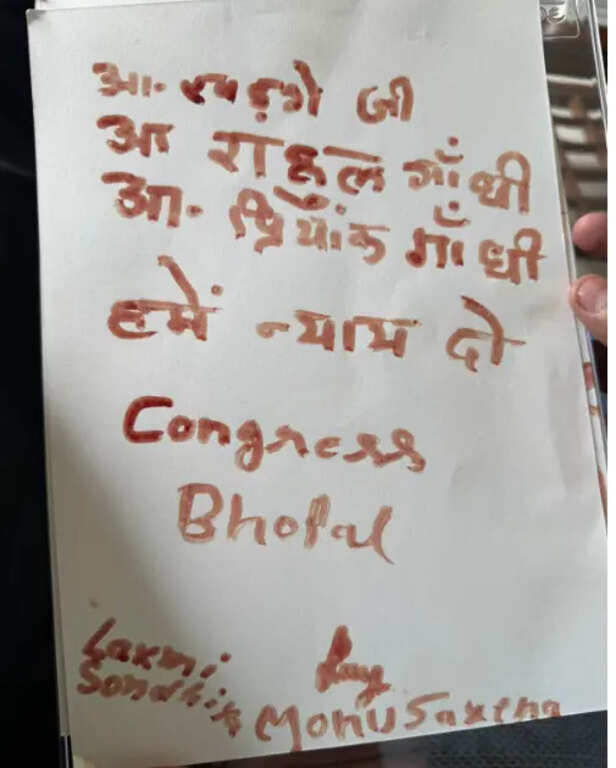 आ. खड़गे जी
आ राहुल गाँधी
आ. प्रियांक गाँधी
हमें न्याय दो
Congress
Bhopal
Laxmi
Monu Saxena